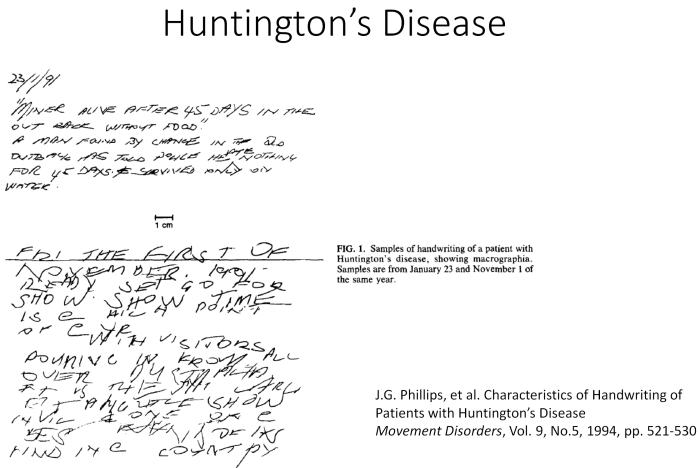 Huntington's Disease
23/1/91
"MINER ALIVE AFTER 45 DAYS IN THE
OUT BACK WITHOUT FOOD."
A MAN FOUND BY CHANCE IN THE
HAS TOLD POLICE NOTHING
FOR 45 DAYS & SURVIVED ONLY ON
WATER.
1 cm
FRI THE FIRST OF
NOVEMBER. 1991-
READY SET GO FOR
SHOW. SHOW TIME
IS POINT
OF
WITH VISITORS
POURING IN FROM ALL
OVER AUSTRALIA
IT IS THE
SHOW
ONE OF
OF ITS
KIND IN COUNTRY
FIG. 1. Samples of handwriting of a patient with
Huntington's disease, showing macrographia.
Samples are from January 23 and November 1 of
the same year.
J.G. Phillips, et al. Characteristics of Handwriting of
Patients with Huntington's Disease
Movement Disorders, Vol. 9, No.5, 1994, pp. 521-530